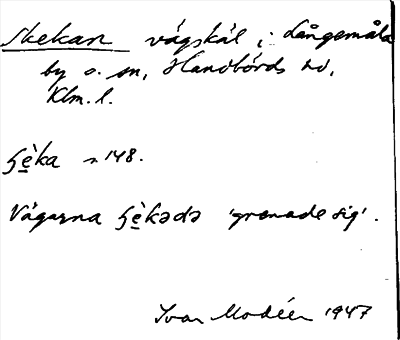 Skekan vägskäl i Långemåla
by o. sn, Handbörds hd,
Klm. l.
ɧèka s. 148.
Vägarna ɧèkədə 'grenade sig'.
Ivar Modéer 1947